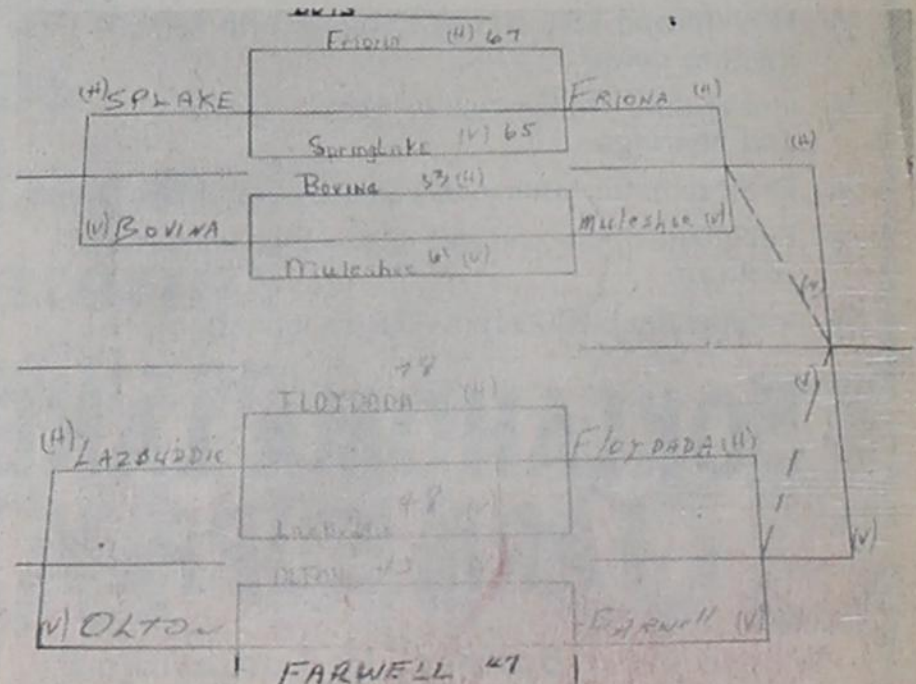 Friona (H) 67
(H) SPLAKE
FRIONA (H)
SpringLake (V) 65
(H)
Bovina 53 (H)
(V) BOVINA
Muleshoe (V)
Muleshoe 61 (V)
(V)
48
FLOYDADA (H)
(H) LAZBUDDIE
FLOYDADA (H)
48 (V)
OLTON 43
(V)
(V) OLTON
FARWELL (V)
FARWELL 47